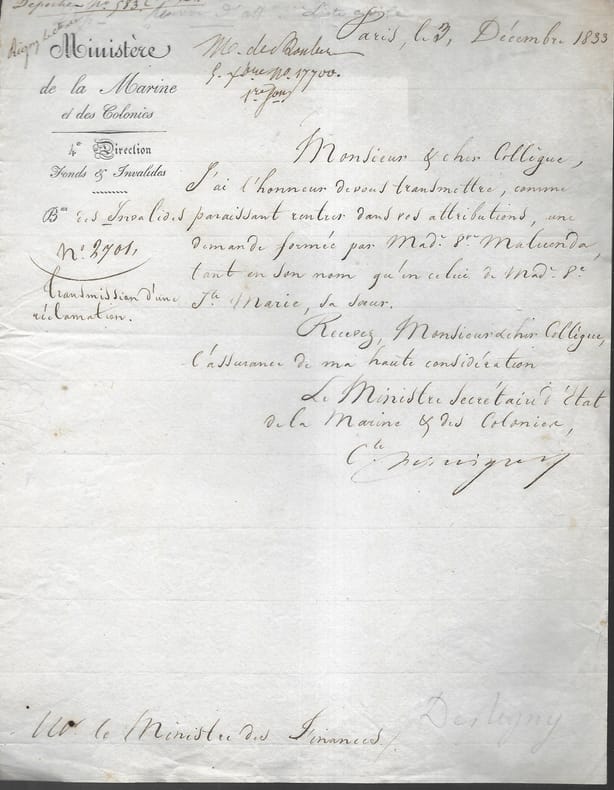 Paris, le 3, Décembre 1833
Ministère
de la Marine
et des Colonies
4e Direction
Fonds & Invalides
Bau des Invalides
No. 2701,
transmission d'une
réclamation.
M. de
No. 17700.
Monsieur & cher Collègue,
J'ai l'honneur de vous transmettre, comme
paraissant rentrer dans vos attributions, une
demande formée par Made. Maluenda,
tant en son nom qu'en celui de Made.
Ste Marie, sa sœur.
Recevez, Monsieur & cher Collègue,
l'assurance de ma haute considération
Le Ministre Secrétaire d'État
de la Marine & des Colonies,
Cte
M. le Ministre des Finances.